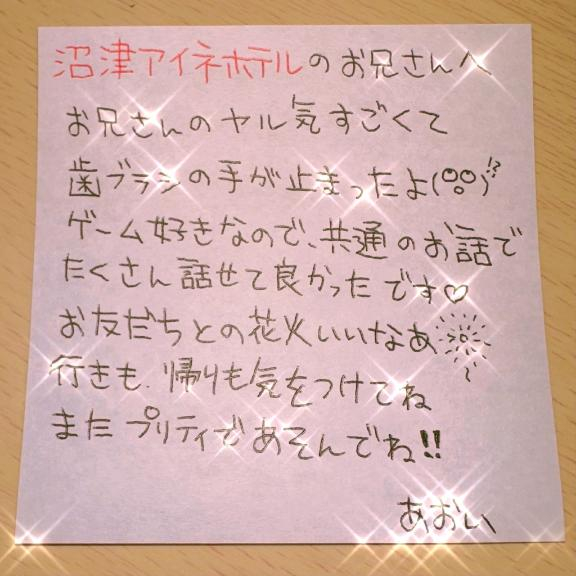 沼津アイネホテルのお兄さんへ
お兄さんのヤル気すごくて
歯ブラシの手が止まったよ(°o°)!?
ゲーム好きなので、共通のお話で
たくさん話せて良かったです♡
お友だちとの花火いいなあ
行きも、帰りも気をつけてね
またプリティであそんでね!!
あおい